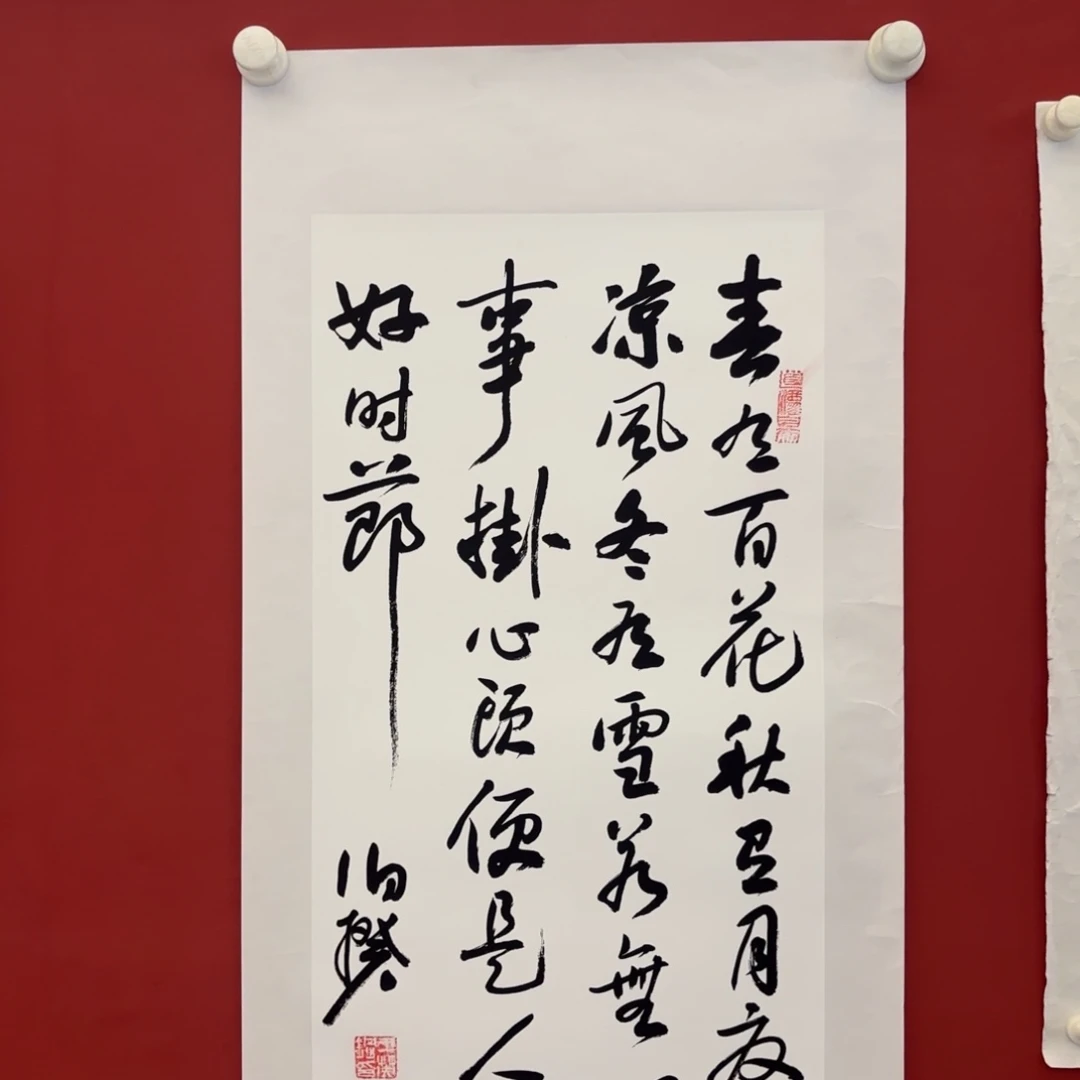 春有百花秋有月夏
凉風冬有雪若無
事掛心頭便是人
好时節
伯揆